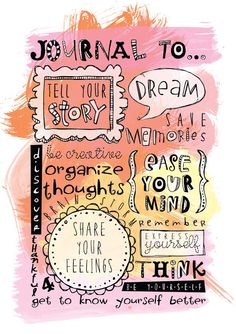 JOURNAL TO...
TELL YOUR
STORY
DREAM
SAVE
MEMORIES
discover
be creative
organize
thoughts
BRAINSTORM
EASE
YOUR
MIND
remember
SHARE
YOUR
FEELINGS
EXPRESS
yourself
thankful
THINK
BE YOURSELF
get to know yourself better